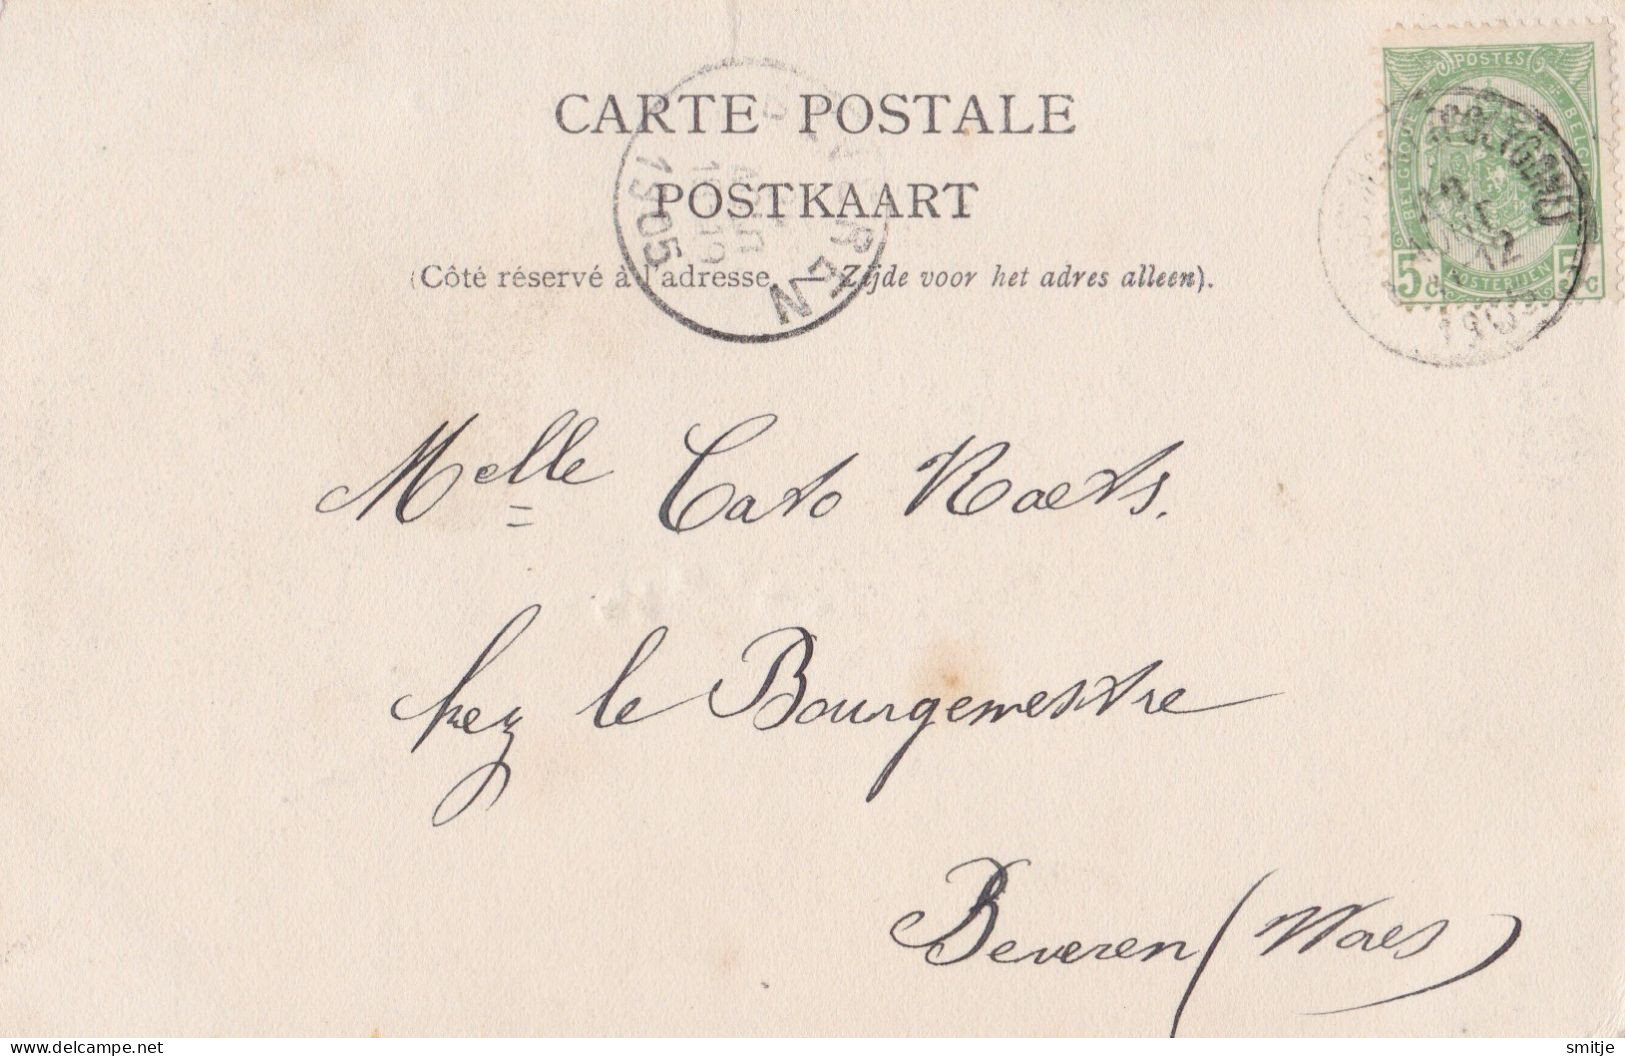 CARTE POSTALE
POSTKAART
(Côté réservé à l'adresse. — Zijde voor het adres alleen).
1905
POSTES
BELGIQUE
BELGIË
POSTERIJEN
5 c 5 c
12
Melle Cato Raets.
chez le Bourgemestre
Beveren (Waes)
delcampe.net
smitje